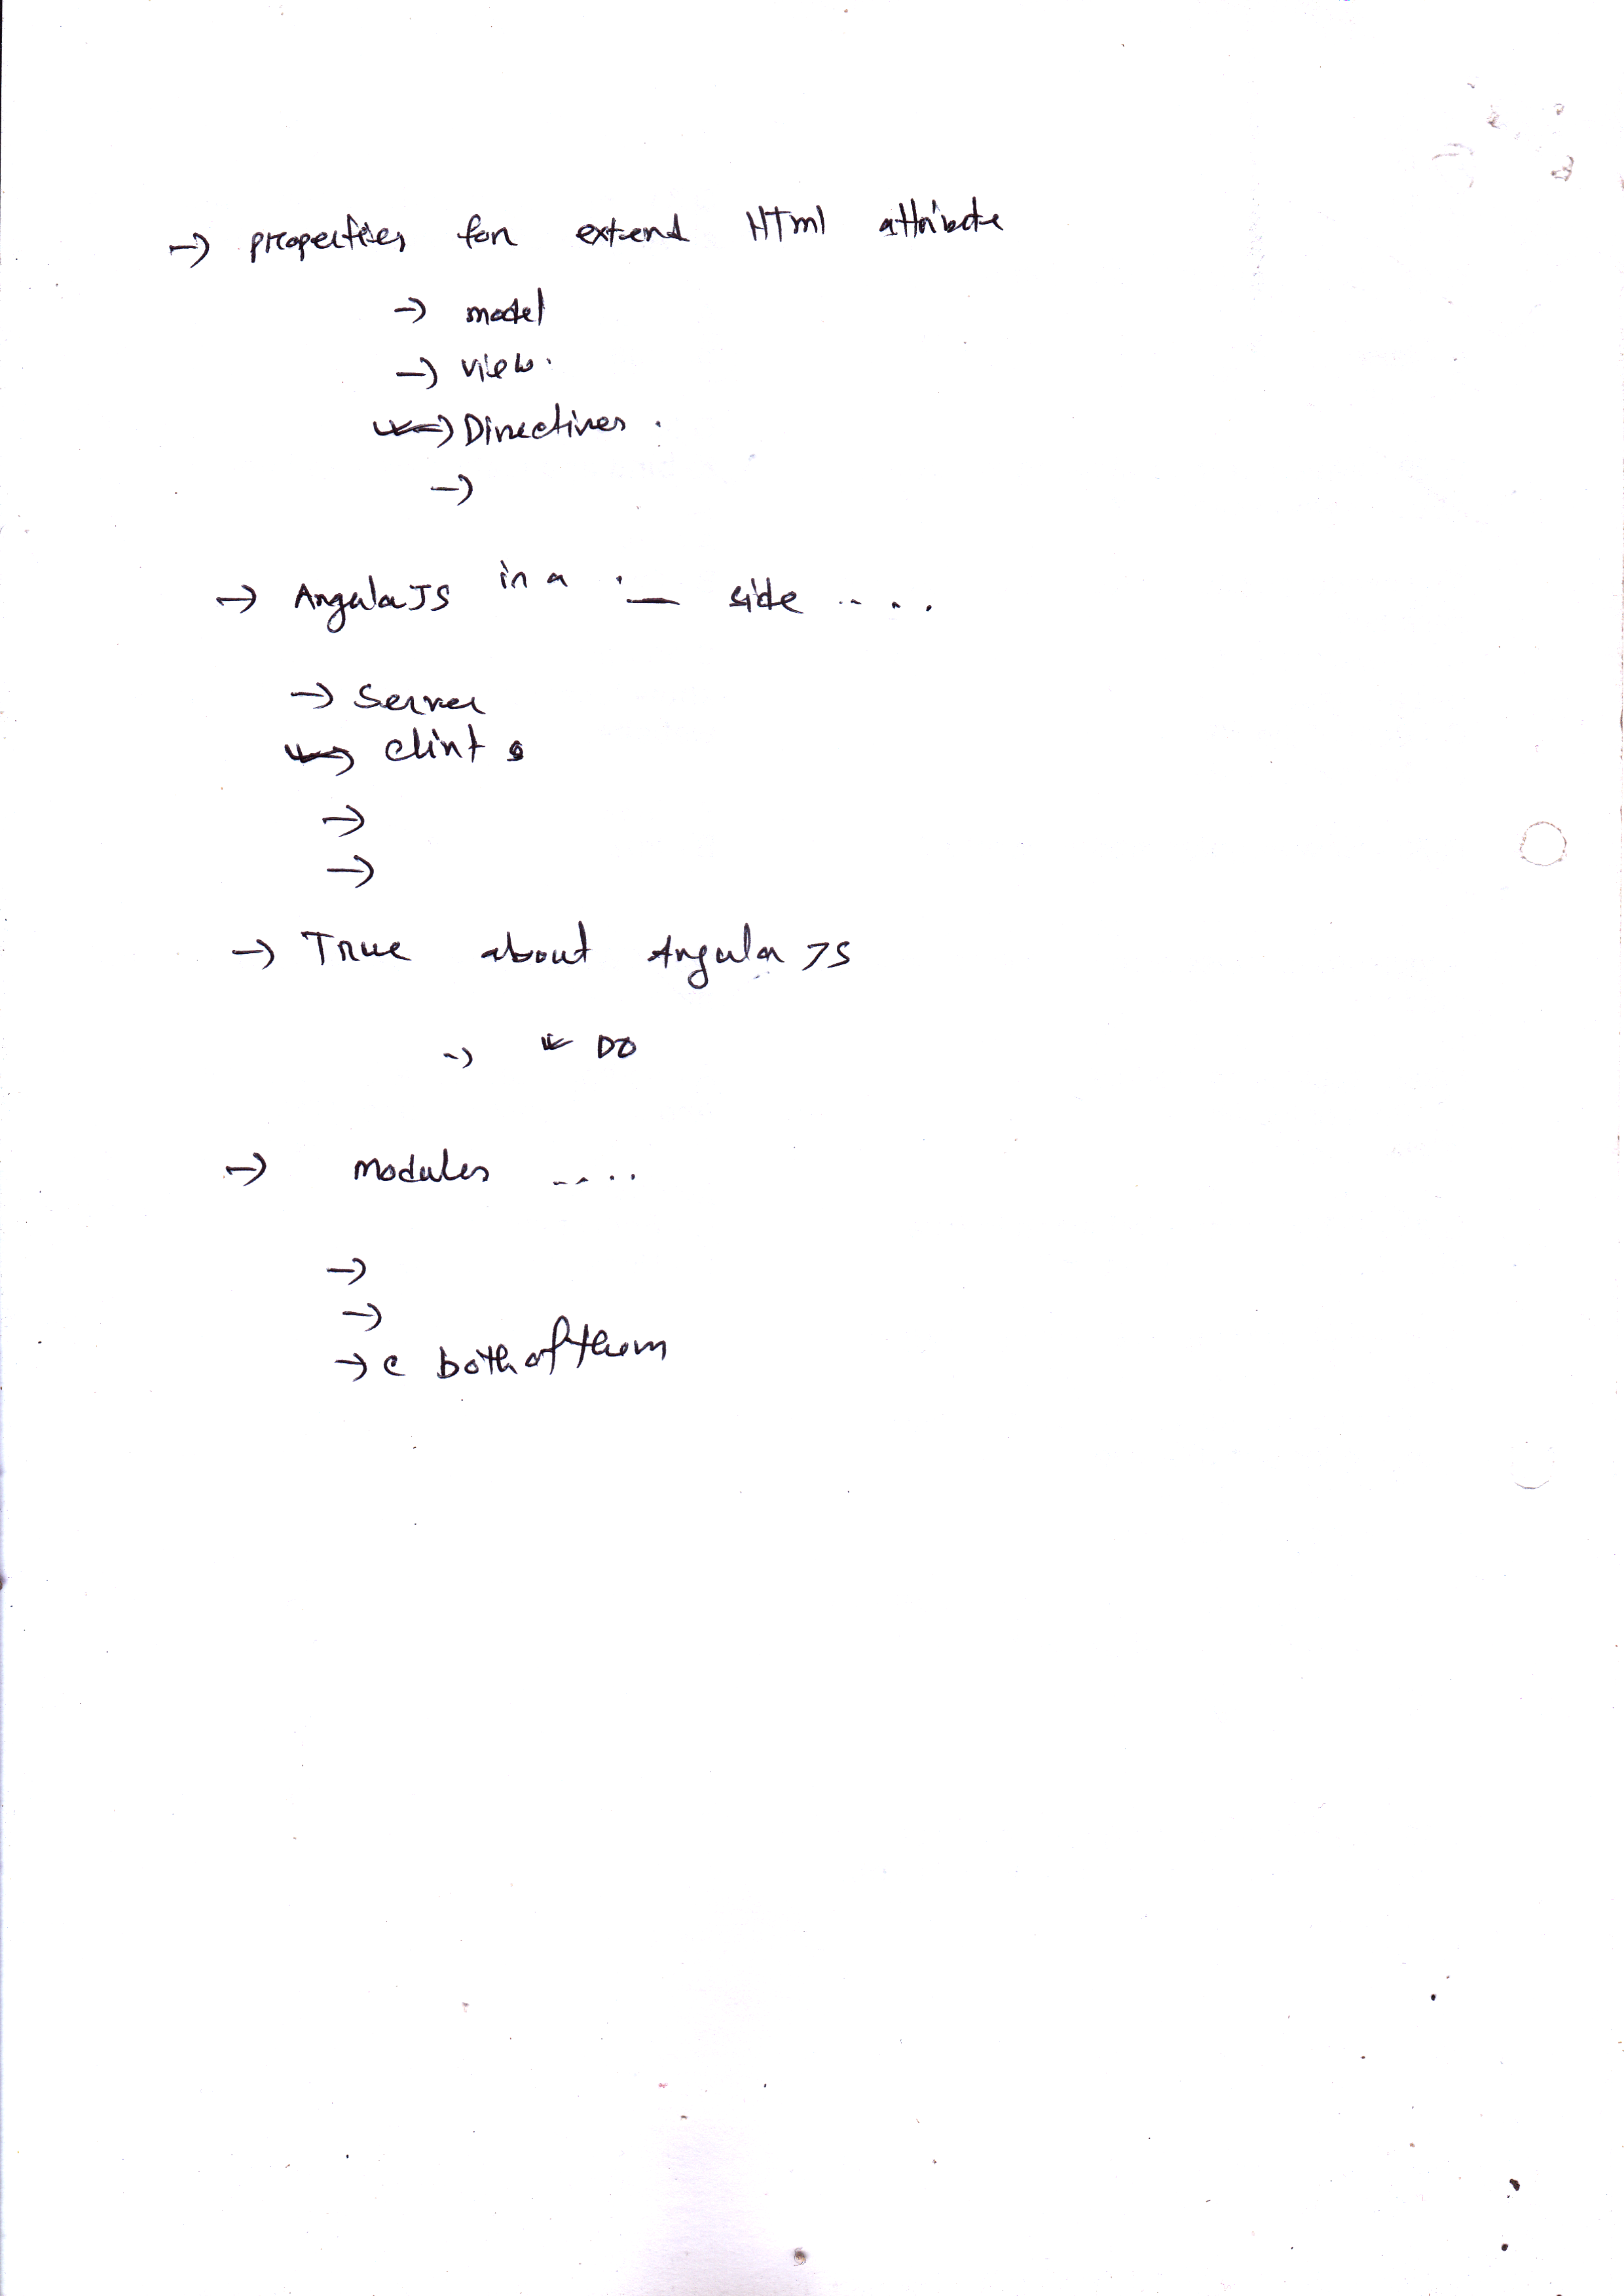 → properties for extend HTml attribute
→ model
→ view.
→ Directives.
→
→ Angula JS in a — side ....
→ Server
→ clint
→
→
→ True about Angula JS
→ DO
→ modules ....
→
→
→ c both of them